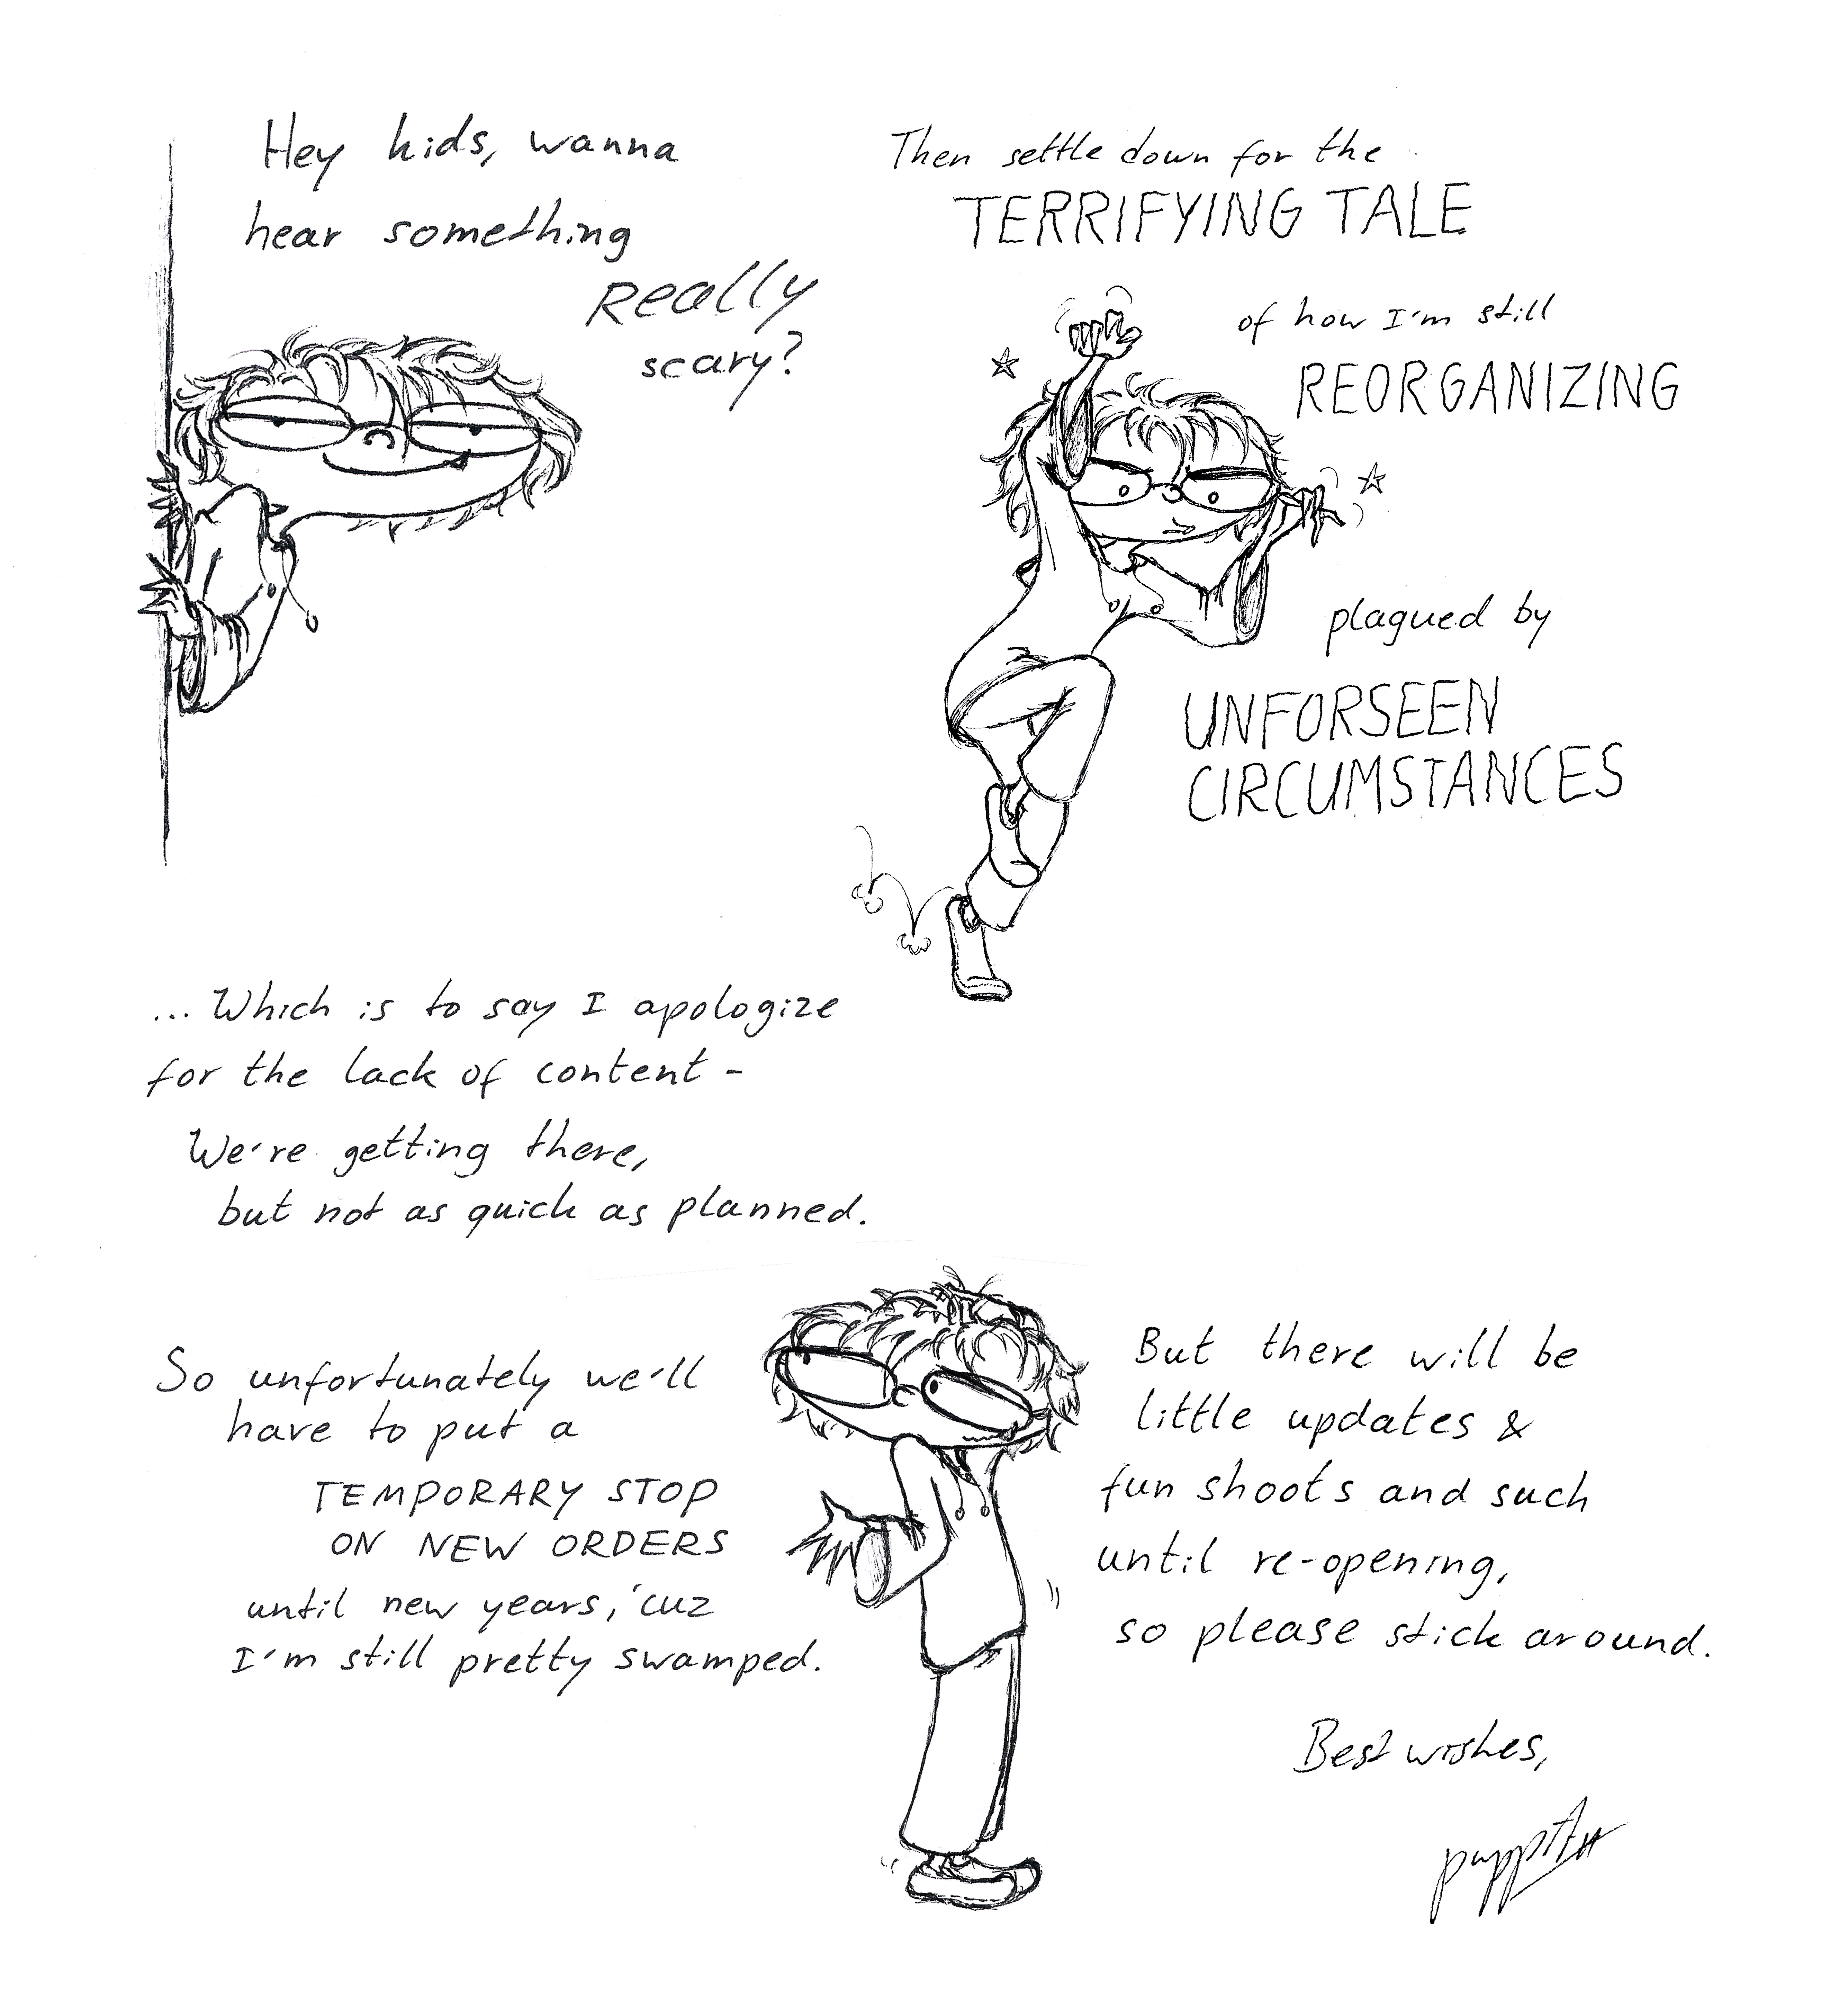 Hey kids, wanna
hear something
Really
scary?
Then settle down for the
TERRIFYING TALE
of how I'm still
REORGANIZING
plagued by
UNFORSEEN
CIRCUMSTANCES
... Which is to say I apologize
for the lack of content -
We're getting there,
but not as quick as planned.
So unfortunately we'll
have to put a
TEMPORARY STOP
ON NEW ORDERS
until new years, 'cuz
I'm still pretty swamped.
But there will be
little updates &
fun shoots and such
until re-opening,
so please stick around.
Best wishes,